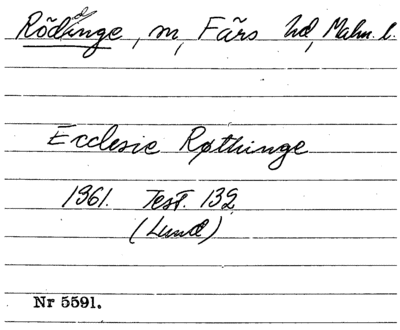 Röddinge, m, Färs hd, Malm. l.
Ecclesie Røthinge
1361. Test. 132
(Lund)
Nr 5591.